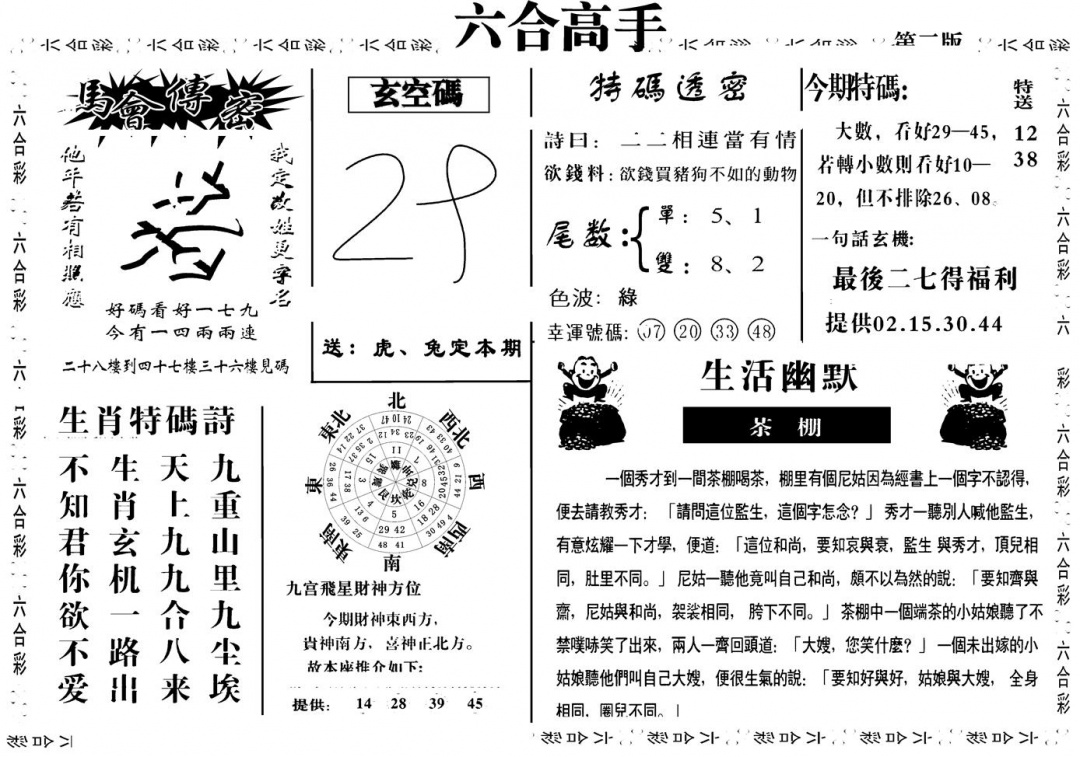 六合高手
第二版
馬會傳密
他年若有相照應
我定改姓更字名
好碼看好一七九
今有一四兩兩連
二十八樓到四十七樓三十六樓見碼
玄空碼
29
送：虎、兔定本期
特碼透密
詩曰：二二相連當有情
欲錢料：欲錢買豬狗不如的動物
尾数：
單：5、1
雙：8、2
色波：綠
幸運號碼：07 20 33 48
今期特碼：
大數，看好29—45，
若轉小數則看好10—
20，但不排除26、08。
特送
12
38
一句話玄機：
最後二七得福利
提供02.15.30.44
生肖特碼詩
九重山里九尘埃
天上九九合八来
生肖玄机一路出
不知君你欲不爱
北
西北
西
西南
南
東南
東
東北
九宫飛星財神方位
今期財神東西方，
貴神南方，喜神正北方。
故本座推介如下：
提供： 14 28 39 45
生活幽默
茶棚
一個秀才到一間茶棚喝茶，棚里有個尼姑因為經書上一個字不認得，
便去請教秀才：「請問這位監生，這個字怎念？」秀才一聽別人喊他監生，
有意炫耀一下才學，便道：「這位和尚，要知哀與衰，監生與秀才，頂兒相
同，肚里不同。」尼姑一聽他竟叫自己和尚，頗不以為然的說：「要知齊與
齋，尼姑與和尚，袈裟相同，胯下不同。」茶棚中一個端茶的小姑娘聽了不
禁噗哧笑了出來，兩人一齊回頭道：「大嫂，您笑什麼？」一個未出嫁的小
姑娘聽他們叫自己大嫂，便很生氣的說：「要知好與好，姑娘與大嫂，全身
相同，圈兒不同。」